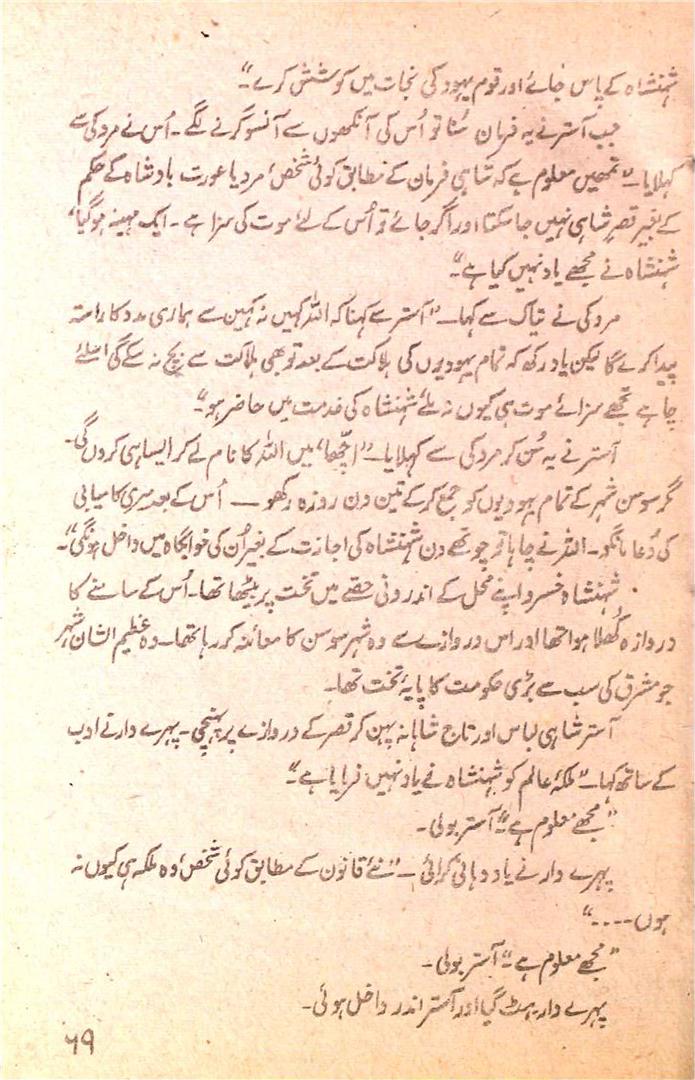 شہنشاہ کے پاس جائے اور قوم یہود کی نجات میں کوشش کرے۔"
جب آستر نے یہ فرمان سُنا تو اُس کی آنکھوں سے آنسو گرنے لگے۔ اُس نے مردکی سے
کہلایا۔ "تمھیں معلوم ہے کہ شاہی فرمان کے مطابق کوئی شخص، مرد یا عورت بادشاہ کے حکم
کے بغیر قصرِ شاہی نہیں جا سکتا اور اگر جائے تو اُس کے لئے موت کی سزا ہے۔ ایک مہینہ ہو گیا،
شہنشاہ نے مجھے یاد نہیں کیا ہے۔"
مردکی نے تپاک سے کہا۔ "آستر سے کہنا کہ اللہ کہیں نہ کہیں سے ہماری مدد کا راستہ
پیدا کرے گا لیکن یاد رکھ کہ تمام یہودیوں کی ہلاکت کے بعد تو بھی ہلاکت سے بچ نہ سکے گی اسلئے
چاہے تجھے سزائے موت ہی کیوں نہ ملے شہنشاہ کی خدمت میں حاضر ہو۔"
آستر نے یہ سُن کر مردکی سے کہلایا۔ "اچّھا، میں اللہ کا نام لے کر ایسا ہی کروں گی۔
مگر سوسن شہر کے تمام یہودیوں کو جمع کرکے تین دن روزہ رکھو — اُس کے بعد میری کامیابی
کی دُعا مانگو۔ اللہ نے چاہا تو چوتھے دن شہنشاہ کی اجازت کے بغیر اُن کی خوابگاہ میں داخل ہونگی۔"
شہنشاہ خسرو اپنے محل کے اندرونی حصّے میں تخت پر بیٹھا تھا۔ اُس کے سامنے کا
دروازہ کُھلا ہوا تھا اور اس دروازے سے وہ شہر سوسن کا معائنہ کر رہا تھا۔ وہ عظیم الشان شہر
جو مشرق کی سب سے بڑی حکومت کا پایۂ تخت تھا۔
آستر شاہی لباس اور تاج شاہانہ پہن کر قصر کے دروازے پر پہنچی۔ پہرے دار نے ادب
کے ساتھ کہا۔ "ملکۂ عالم کو شہنشاہ نے یاد نہیں فرمایا ہے۔"
"مجھے معلوم ہے۔" آستر بولی۔
پہرے دار نے یاد دہانی کرائی۔ "نئے قانون کے مطابق کوئی شخص، وہ ملکہ ہی کیوں نہ
ہوں ----"
"مجھے معلوم ہے۔" آستر بولی۔
پہرے دار ہٹ گیا اور آستر اندر داخل ہوئی۔
۶۹